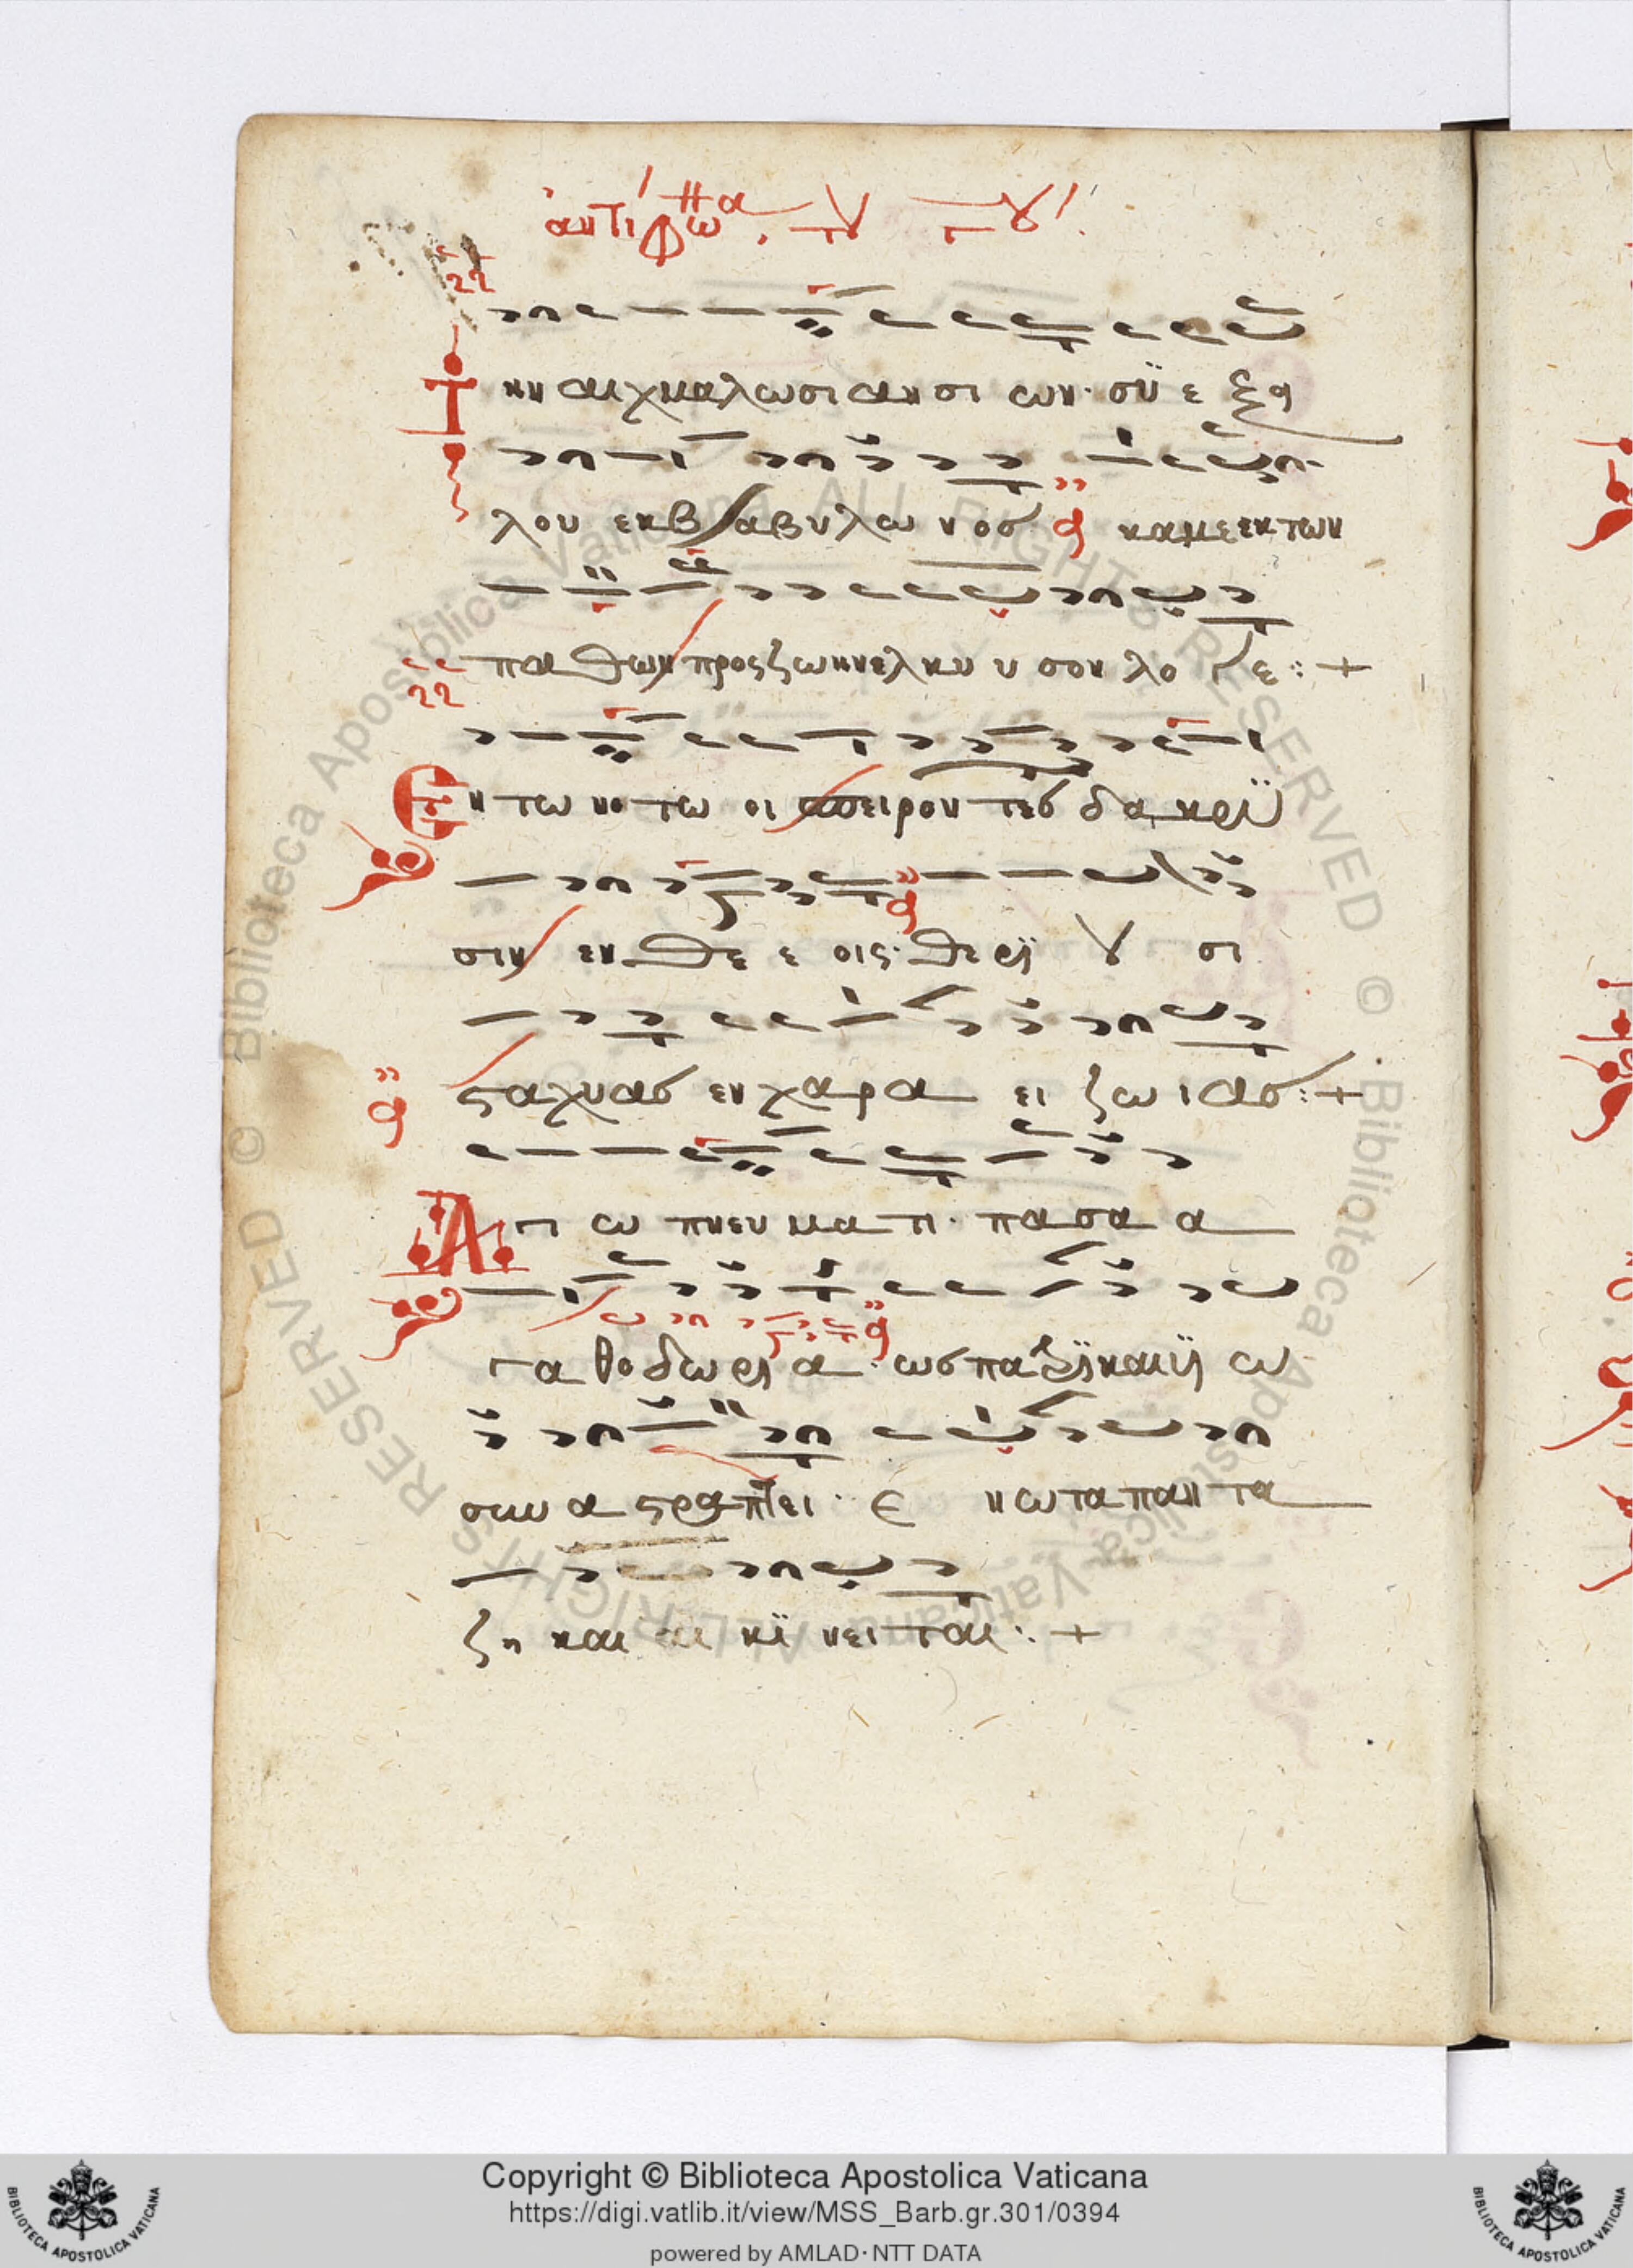 ἀντίφω
Τ ην αιχμαλωσι αν σι ων· σϋ ε ξα
λου εκβ αβυλω νοσ καμε εκ των
πα θων προς ζωην ελκυ υ σον λο γε :+
Εν τω νο τω οι σπειρον τεσ δα κρϋ
σιν εν θε ε οις· θερϊ ȣ σι
σταχυασ εν χαρα ει ζω ιασ :+
Α γι ω πνευ μα τι· πασα α
γα θο δωρι α· ωσ πατρϊ και ϋι ω
συν α στραπτει· ε ν ω τα παν τα
ζη και κι νει ται :+
Copyright © Biblioteca Apostolica Vaticana
https://digi.vatlib.it/view/MSS_Barb.gr.301/0394
powered by AMLAD·NTT DATA